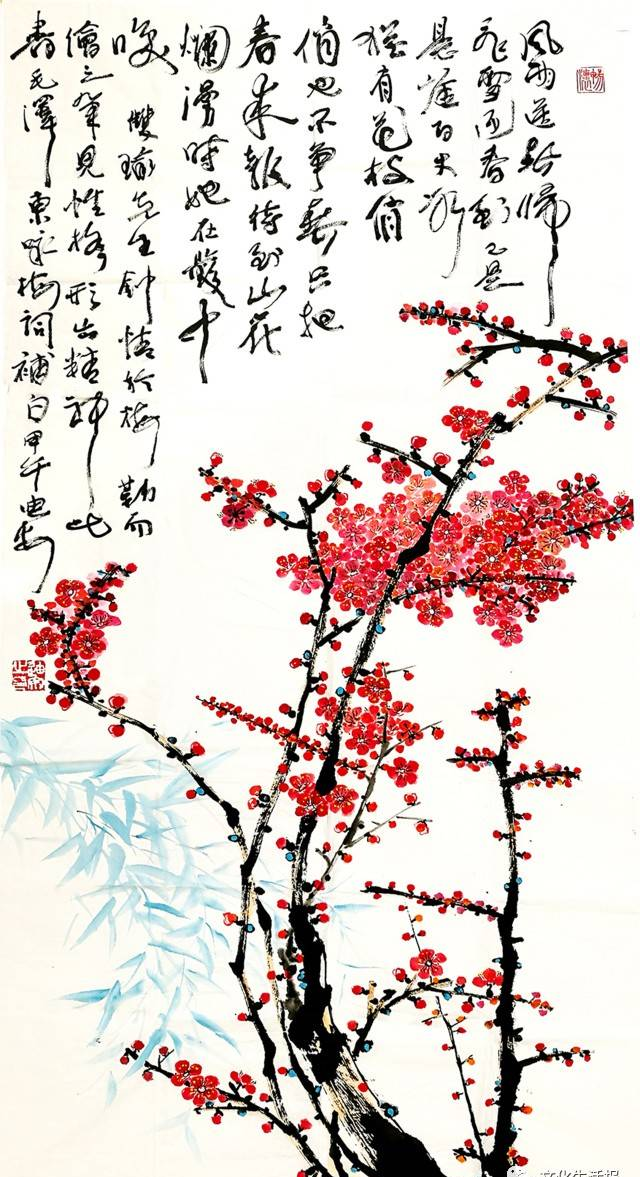 风雨送春归
飞雪迎春到已是
悬崖百丈冰
犹有花枝俏
俏也不争春只把
春来报待到山花
烂漫时她在丛中
笑 雙瑜先生钟情於梅勤而
繪之笔见性格形出精神此
書毛泽东咏梅词補白甲午
文化生活报